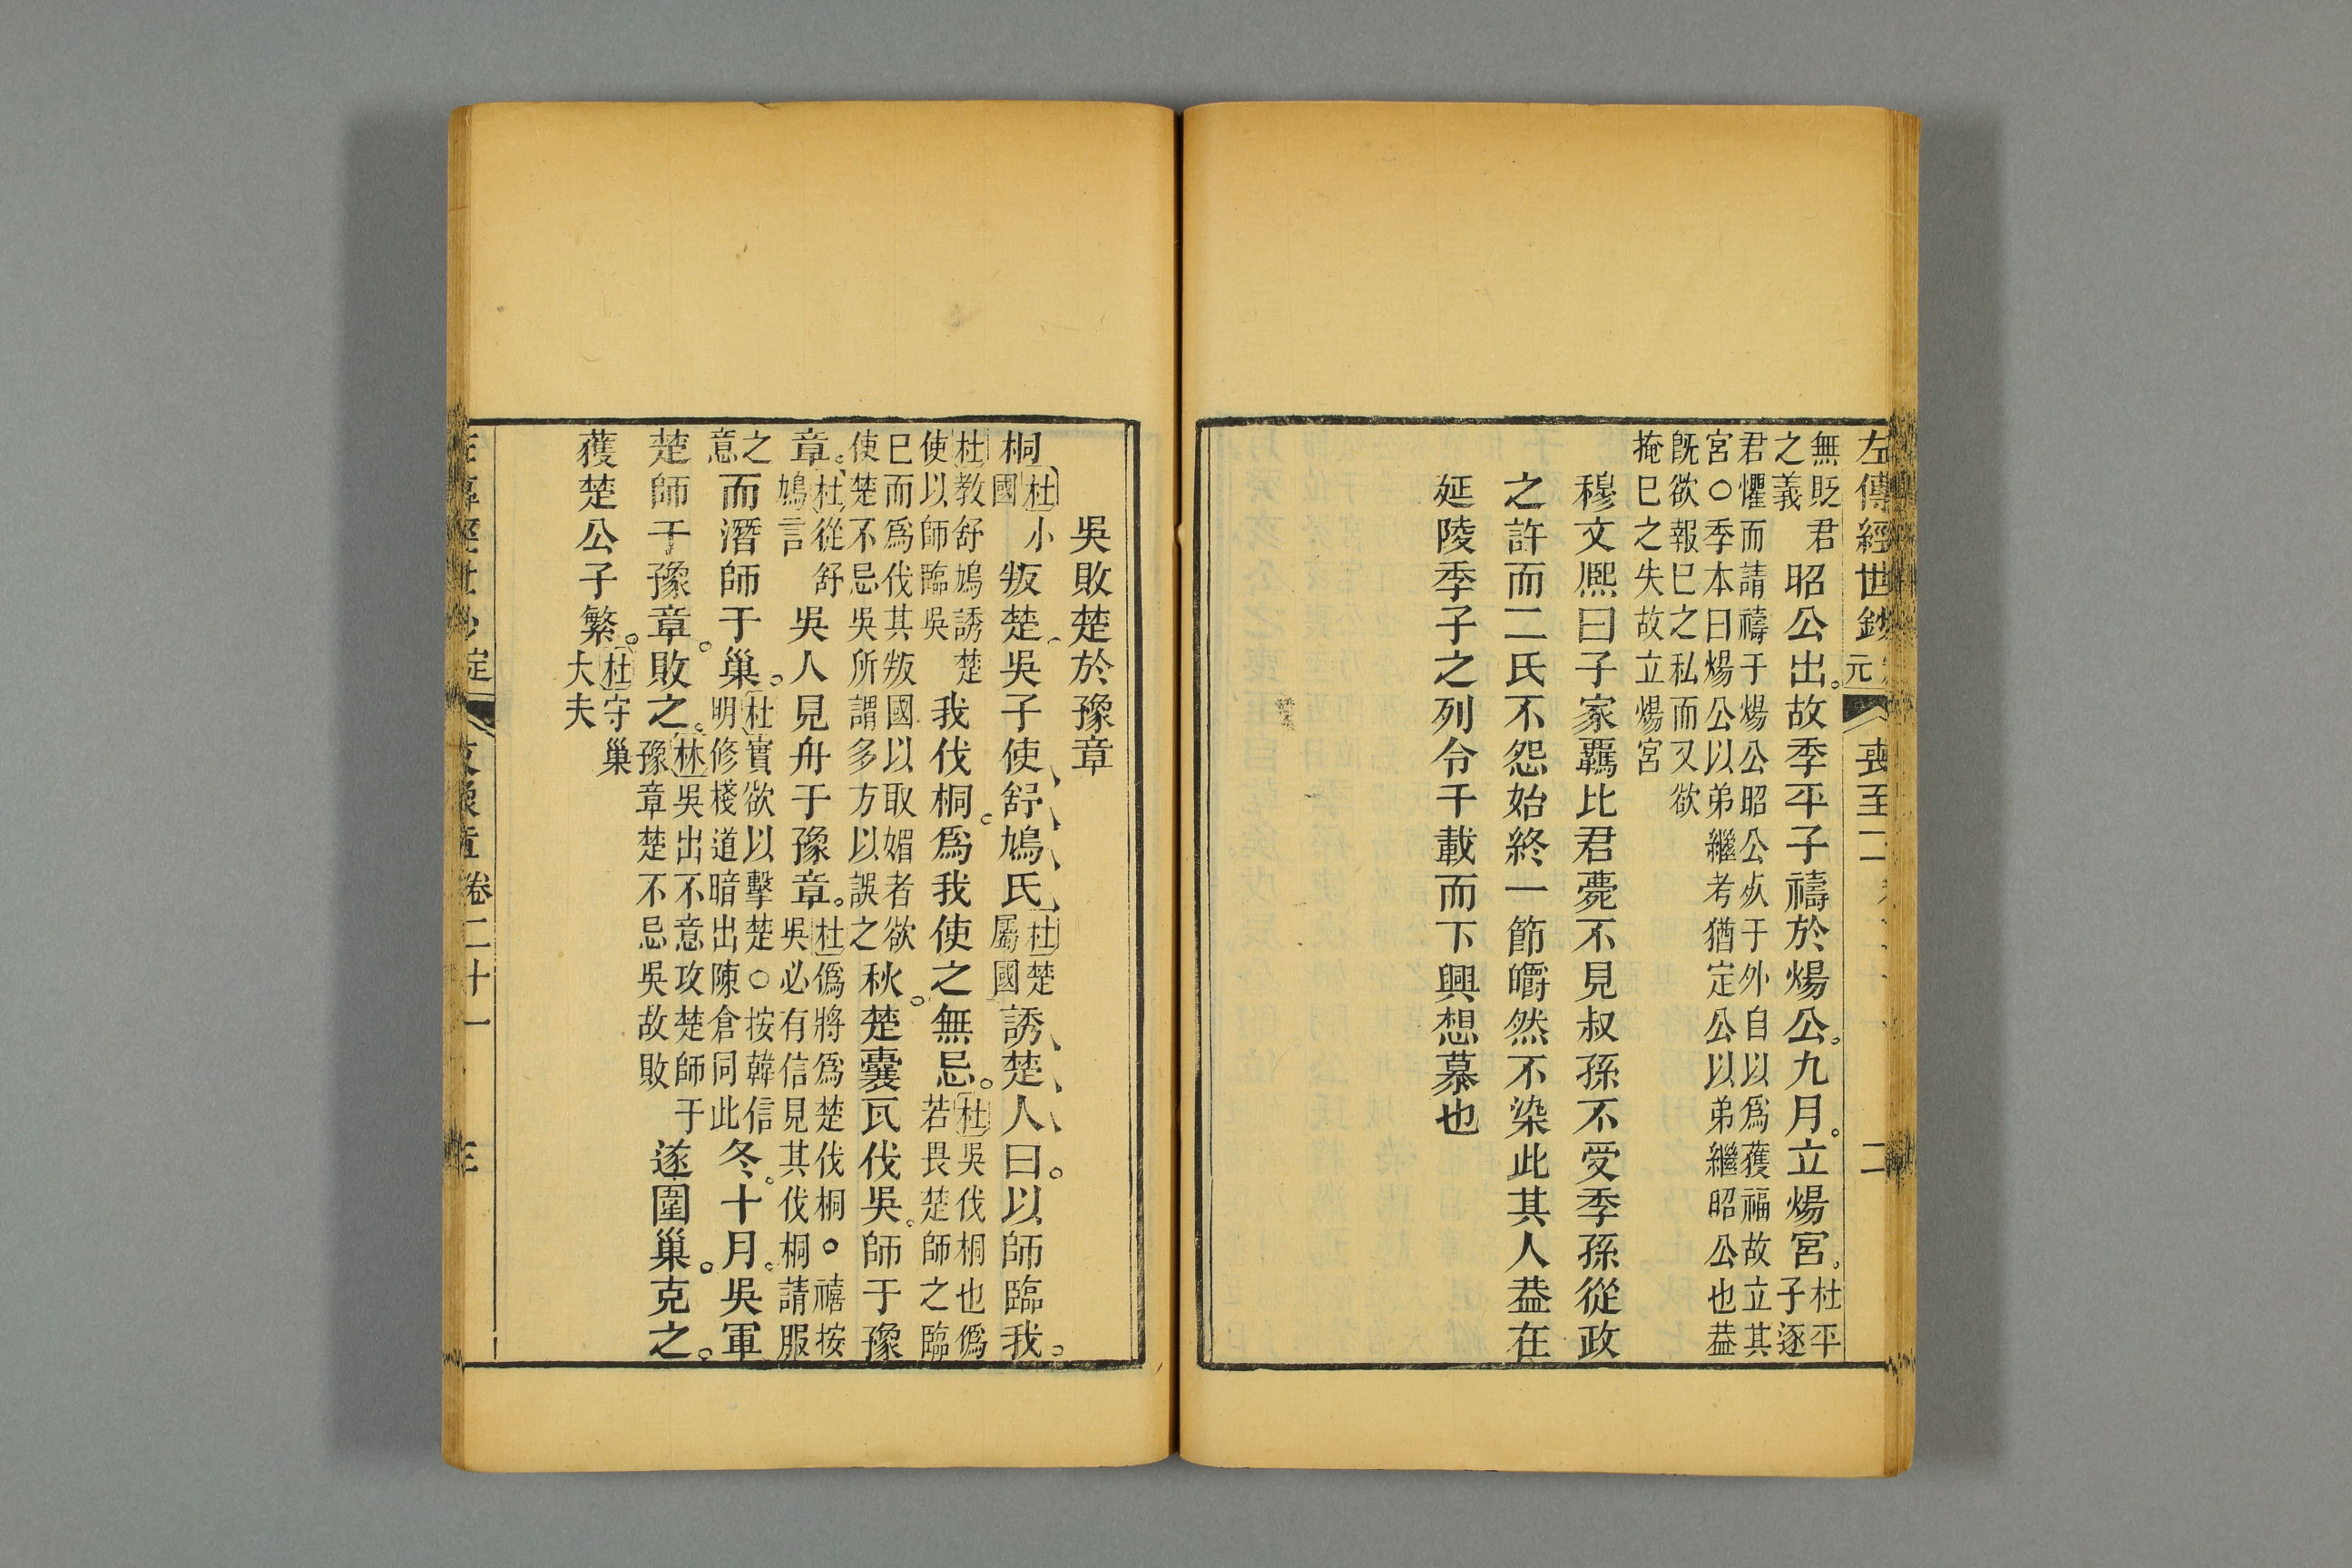 左傳經世鈔
元
喪至
二
無貶君
之義
昭公出故季平子禱於煬公九月立煬宮
杜平
子逐
君懼而請禱于煬公昭公死于外自以爲獲福故立其
宮○季本曰煬公以弟繼考猶定公以弟繼昭公也葢
旣欲報巳之私而又欲
掩巳之失故立煬宮
穆文熈曰子家羈比君薨不見叔孫不受季孫從政
之許而二氏不怨始終一節皭然不染此其人葢在
延陵季子之列令千載而下興想慕也
吳敗楚於豫章
桐
杜小
國
叛楚吳子使舒鳩氏
杜楚
屬國
誘楚人曰以師臨我
杜教舒鳩誘楚
使以師臨吳
我伐桐爲我使之無忌
杜吳伐桐也僞
若畏楚師之臨
巳而爲伐其叛國以取媚者欲
使楚不忌吳所謂多方以誤之
秋楚囊瓦伐吳師于豫
章
杜從舒
鳩言
吳人見舟于豫章
杜僞將爲楚伐桐○禧按
吳必有信見其伐桐請服
之
意
而潛師于巢
杜實欲以擊楚○按韓信
明修棧道暗出陳倉同此
冬十月吳軍
楚師于豫章敗之
林吳出不意攻楚師于
豫章楚不忌吳故敗
遂圍巢克之
獲楚公子繁
杜守巢
大夫
卷二十一